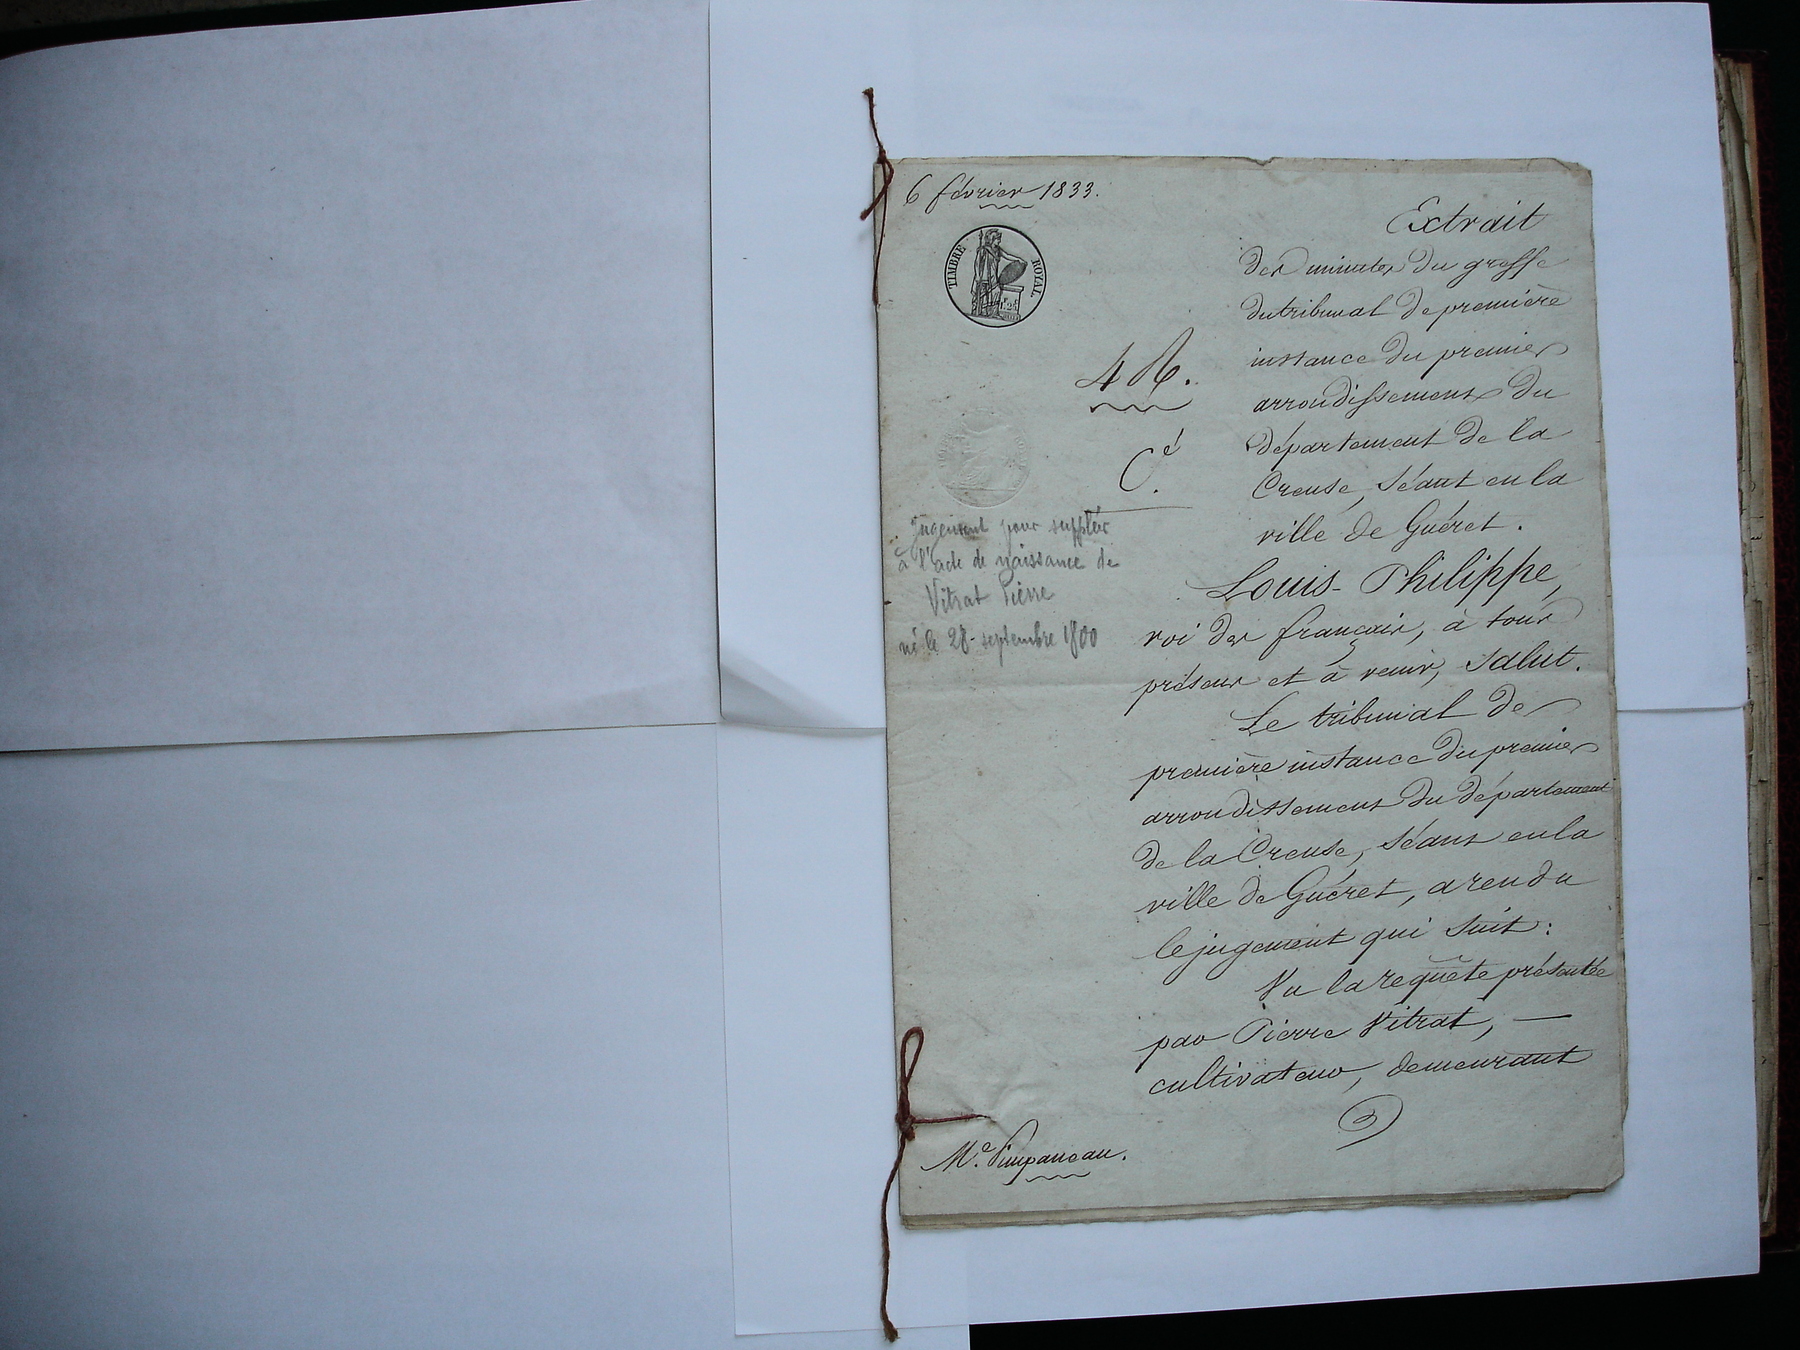 6 février 1833.
TIMBRE ROYAL.
4 R.
Cé.
Jugement pour suppléer
à l'acte de naissance de
Vitrat Pierre
né le 28 septembre 1800
Extrait
des minutes du greffe
du tribunal de première
instance du premier
arrondissement du
département de la
Creuse, séant en la
ville de Guéret.
Louis-Philippe,
roi des français, à tous
présens et à venir, Salut.
Le tribunal de
première instance du premier
arrondissement du département
de la Creuse, séant en la
ville de Guéret, a rendu
le jugement qui suit :
Vu la requête présentée
par Pierre Vitrat, —
cultivateur, demeurant
Me. Pimpaneau.